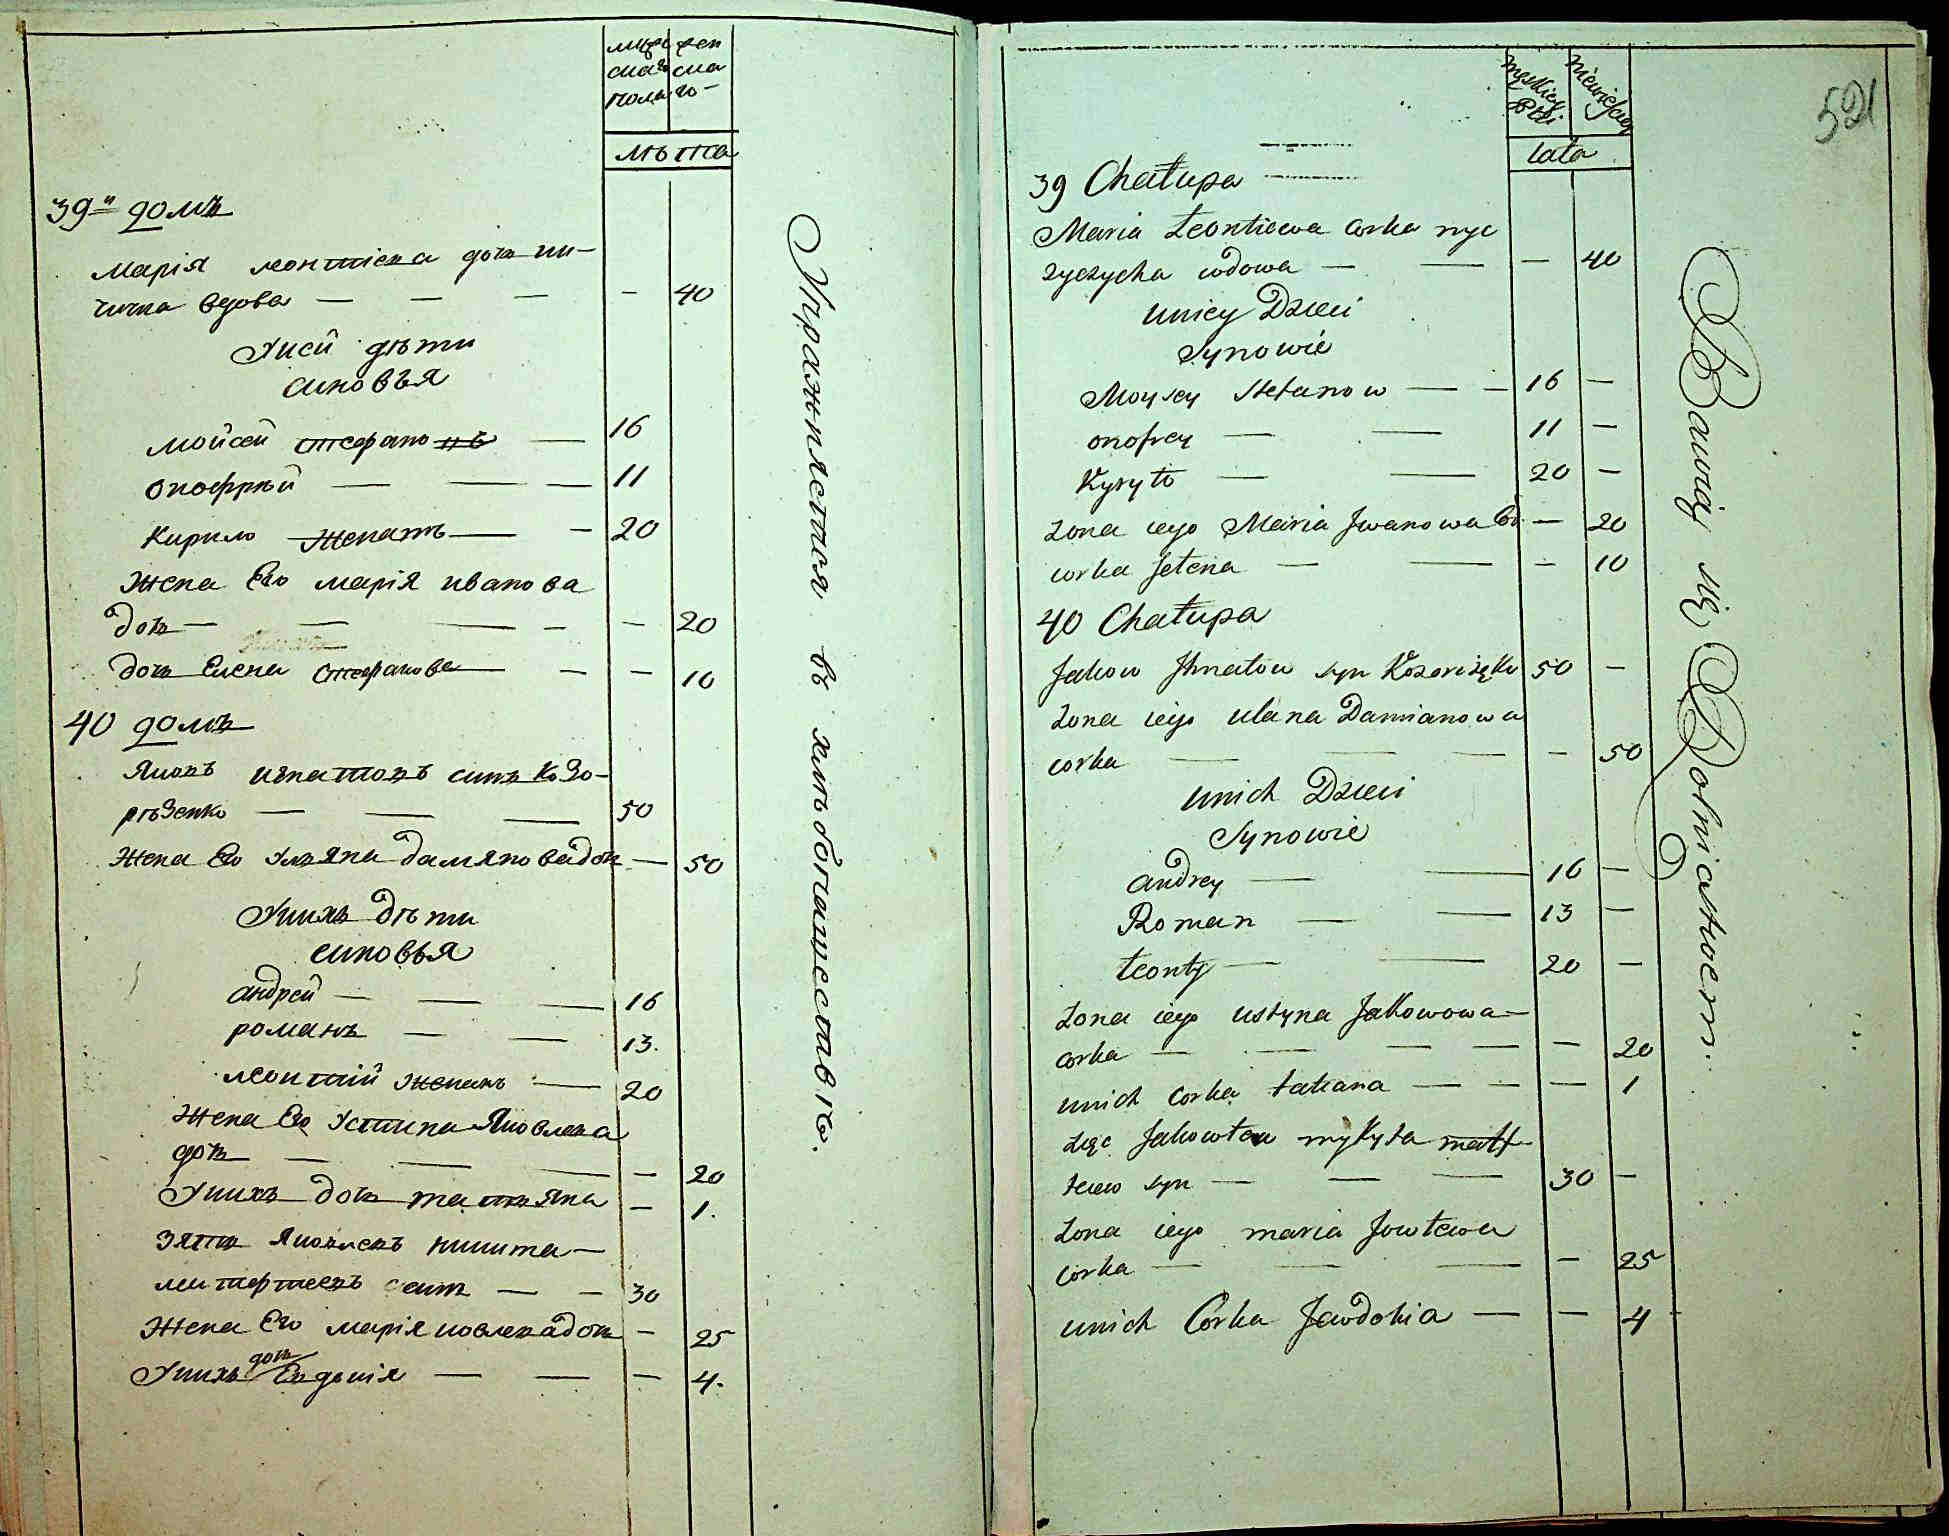 мужеска полу
женска го
лѣта
39й домъ
Марія леонтіева дочь ни-
чичка вдова — — — — 40
Унеи дѣти
синовъя
мойсей стефановъ — 16
онофрѣй — — — 11
Кирило женатъ — — 20
Жена Его марія иванова
дочь — — — — — 20
дочь Елена стефанова — — — 10
40 домъ
Яковъ игнатовъ синъ Козо-
рѣзенко — — — 50
Жена Его улъяна дамяновадочь — 50
Унихъ дѣти
синовъя
андрей — — — 16
романъ — — 13.
леонтій женатъ — 20
Жена Его Устина Яковлева
дочь — — — — 20
Унихъ дочь татъяна — 1.
Зять Яковлевъ никита —
митофтеевъ синъ — — 30
Жена Его марія иовлевадочь — 25
Унихъ дочь Евдокія — — — 4.
Упражняется въ хлѣбопашествѣ.
521
męskiey Płci
niewieściey
lata
39 Chałupa
Maria Leontiewa corka nyc
zyczycha wdowa — — — 40
uniey Dzieci
Synowie
Moysey Stefanow — — 16 —
onofrey — — 11 —
Kyryło — — 20 —
żona iego Maria Jwanowa Co. — 20
corka Jełena — — — 10
40 Chałupa
Jakow Jhnatow syn Kozoriżęko 50 —
żona iego ulana Damianowa
corka — — — — 50
unich Dzieci
Synowie
andrey — — 16 —
Roman — — 13 —
Leonty — — 20 —
żona iego ustyna Jakowowa —
corka — — — — — 20
unich corka tatiana — — — 1
zięc Jakowlew mykyta matf-
teiew syn — — — 30 —
żona iego maria Jowlewa
corka — — — — 25
unich Corka Jewdokia — — 4
Bawią się Rolniastwem.